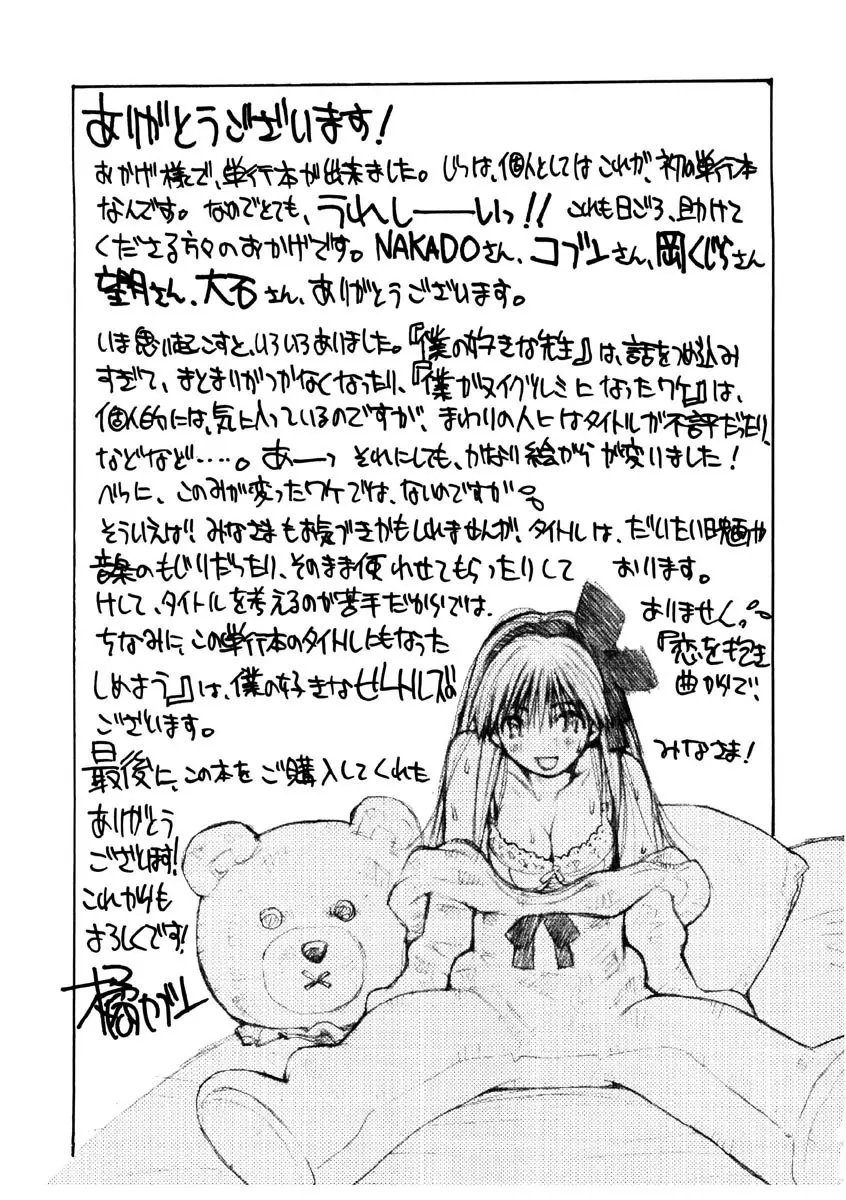 ありがとうございます!
おかげ様で、単行本が出来ました。じつは、個人としてはこれが、初の単行本
なんです。なのでとても、うれしーーいっ!! これも日ごろ、助けて
くださる方々のおかげです。NAKADOさん、コブンさん、岡くじらさん
望月さん、大石さん、ありがとうございます。
いま思い起こすと、いろいろありました。『僕の好きな先生』は、話をつめ込み
すぎて、まとまりがつかなくなったり、『僕がヌイグルミになったワケ』は、
個人的には、気に入っているのですが、まわりの人にはタイトルが不評だったり、
などなど・・・・。あーっ それにしても、かなり絵がらが変りました!
べつに、このみが変ったワケでは、ないのですが。
そういえば! みなさまもお気づきかもしれませんが、タイトルは、だいたい映画や
音楽のもじりだったり、そのまま使わせてもらったりして おります。
けして、タイトルを考えるのが苦手だからでは、 ありませんっ。
ちなみに、この単行本のタイトルにもなった 『恋を抱き
しめよう』は、僕の好きなビートルズの 曲からで、
ございます。
最後に、この本をご購入してくれた みなさま!
ありがとう
ございます!
これからも
よろしくです!
橘